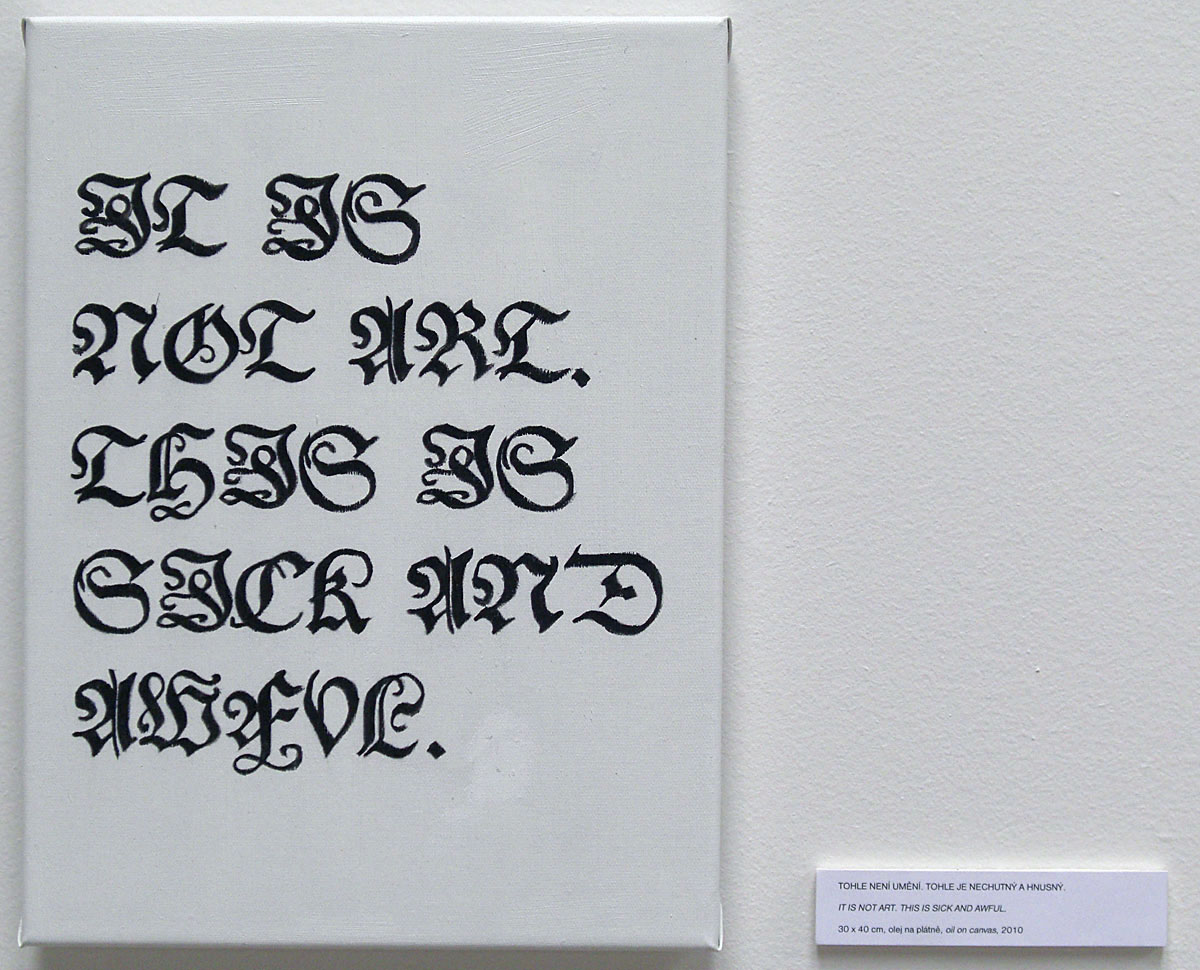 IT IS
NOT ART.
THIS IS
SICK AND
AWFUL.
TOHLE NENÍ UMĚNÍ. TOHLE JE NECHUTNÝ A HNUSNÝ.
IT IS NOT ART. THIS IS SICK AND AWFUL.
30 x 40 cm, olej na plátně, oil on canvas, 2010